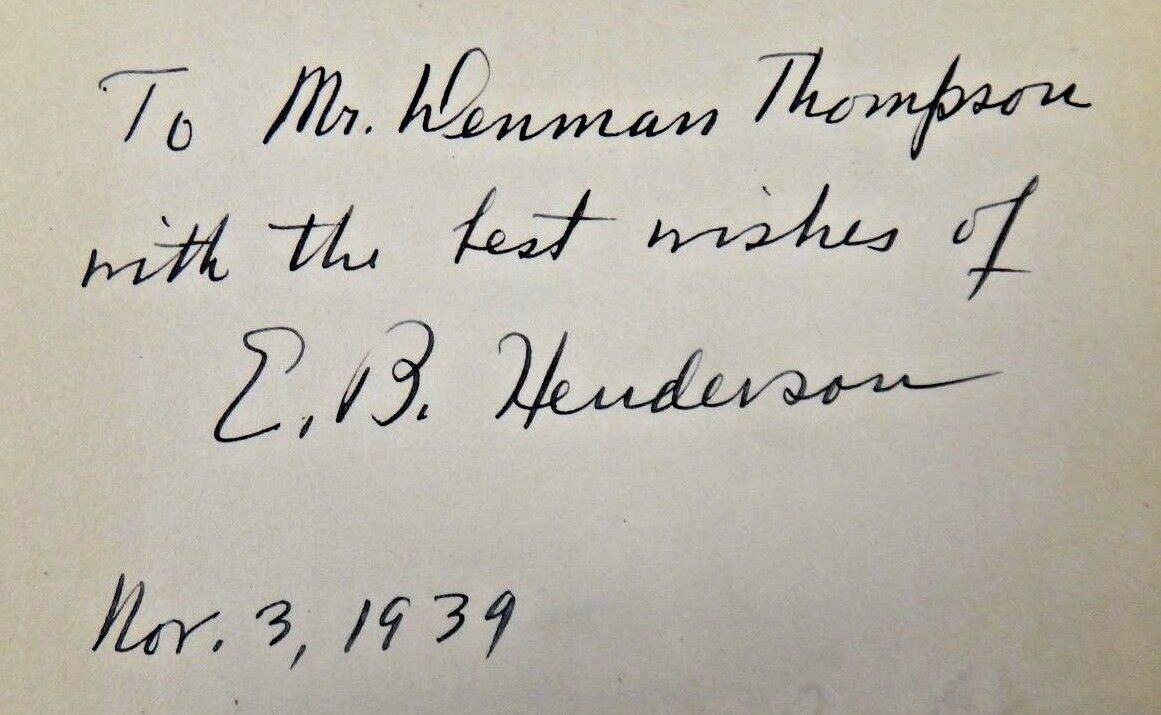 To Mr. Denman Thompson
with the best wishes of
E. B. Henderson
Nov. 3, 1939